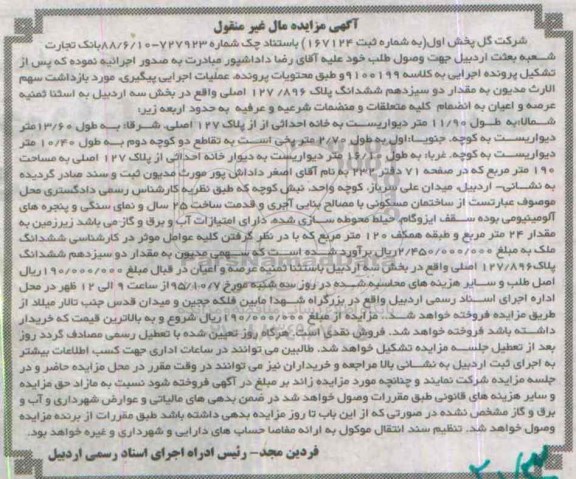 آگهی مزایده مال غیر منقول
شرکت گل پخش اول(به شماره ثبت ۱۶۷۱۲۴) باستناد چک شماره ۷۲۷۹۲۳-۸۸/۶/۱۰بانک تجارت
شعبه بعثت اردبیل جهت وصول طلب خود علیه آقای رضا داداشپور مبادرت به صدور اجرائیه نموده که پس از
تشکیل پرونده اجرایی به کلاسه ۹۱۰۰۱۹۹و طبق محتویات پرونده، عملیات اجرایی پیگیری، مورد بازداشت سهم
الارث مدیون به مقدار دو سیزدهم ششدانگ پلاک ۱۲۷/۸۹۶ اصلی واقع در بخش سه اردبیل به استثنا ثمنیه
عرصه و اعیان به انضمام کلیه متعلقات و منضمات شرعیه و عرفیه به حدود اربعه زیر:
شمالا:به طول ۱۱/۹۰ متر دیواریست به خانه احداثی از از پلاک ۱۲۷ اصلی. شرقا: به طول ۱۳/۶۰متر
دیواریست به کوچه. جنوبا:اول به طول ۲/۷۰ متر پخی است به تقاطع دو کوچه دوم به طول ۱۰/۴۰ متر
دیواریست به کوچه. غربا: به طول متر دیواریست به دیوار خانه احداثی از پلاک ۱۲۷ اصلی به مساحت
۱۹۰ متر مربع که در صفحه ۷۱ دفتر ۲۳۲ به نام آقای اصغر داداش پور مورد مدیون ثبت و سند صادر گردیده
به نشانی- اردبیل، میدان علی سرباز، کوچه واحد، نبش کوچه که طبق نظریه کارشناس رسمی دادگستری محل
موصوف عبارتست از ساختمان مسکونی با مصالح بنایی آجری و قدمت ساخت ۲۵ سال و نمای سنگی و پنجره های
آلومینیومی بوده سقف ایزوگام، حیاط محوطه سازی شده، دارای امتیازات آب و برق و گاز می باشد زیرزمین به
مقدار ۲۴ متر مربع و طبقه همکف ۱۲۰ متر مربع که با در نظر گرفتن کلیه عوامل موثر در کارشناسی ششدانگ
ملک به مبلغ ۲/۴۵۰/۰۰۰/۰۰۰ریال برآورد شده است که سهمی مدیون به مقدار دو سیزدهم ششدانگ
پلاک۱۲۷/۸۹۶ اصلی واقع در بخش سه اردبیل باستثنا ثمنیه عرصه و اعیان در قبال مبلغ ۱۹۰/۰۰۰/۰۰۰ریال
اصل طلب و سایر هزینه های محاسبه شده در روز سه شنبه مورخ ۹۵/۱۰/۷از ساعت ۹ الی ۱۲ ظهر در محل
اداره اجرای اسناد رسمی اردبیل واقع در بزرگراه شهدا مابین فلکه ججین و میدان قدس جنب تالار میلاد از
طریق مزایده فروخته خواهد شد. مزایده از مبلغ ۱۹۰/۰۰۰/۰۰۰ریال شروع و به بالاترین قیمت که خریدار
داشته باشد فروخته خواهد شد. فروش نقدی است هرگاه روز تعیین شده با تعطیل رسمی مصادف گردد روز
بعد از تعطیل جلسه مزایده تشکیل خواهد شد. طالبین می توانند در ساعات اداری جهت کسب اطلاعات بیشتر
به اجرای ثبت اردبیل به نشانی بالا مراجعه و خریداران نیز می توانند در وقت مقرر در محل مزایده حاضر و در
جلسه مزایده شرکت نمایند و چنانچه مورد مزایده زائد بر مبلغ در آگهی فروخته شود نسبت به مازاد حق مزایده
و سایر هزینه های قانونی طبق مقررات وصول خواهد شد در ضمن بدهی های مالیاتی و عوارض شهرداری و آب و
برق و گاز مشخص نشده در صورتی که از این باب تا روز مزایده بدهی داشته باشد طبق مقررات از برنده مزایده
وصول خواهد شد. تنظیم سند انتقال موکول به ارائه مفاصا حساب های دارایی و شهرداری و غیره خواهد بود.
فردین مجد- رئیس ادراه اجرای اسناد رسمی اردبیل